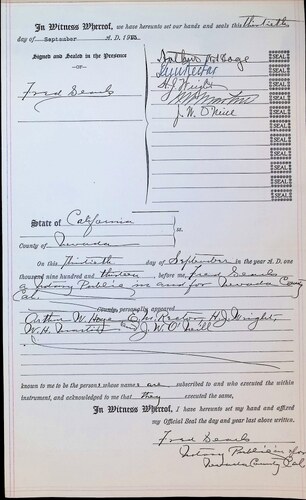 In Witness Whereof, we have hereunto set our hands and seals this thirtieth
day of September A. D. 1913.
Signed and Sealed in the Presence
—OF—
Fred Searls
Arthur W Hoge
SEAL
SEAL
H J Wright
SEAL
SEAL
J. W. O'Neill
SEAL
SEAL
SEAL
SEAL
SEAL
SEAL
SEAL
State of California
ss.
County of Nevada
On this thirtieth day of September in the year A. D. one
thousand nine hundred and thirteen before me, Fred Searls
a Notary Public in and for Nevada County
Cal.
County, personally appeared
Arthur W. Hoge, H. J. Wright
W. H. and J. W. O'Neill
known to me to be the persons whose names are subscribed to and who executed the within
instrument, and acknowledged to me that they executed the same,
In Witness Whereof, I have hereunto set my hand and affixed
my Official Seal the day and year last above written.
Fred Searls
Notary Public in & for
Nevada County Cal